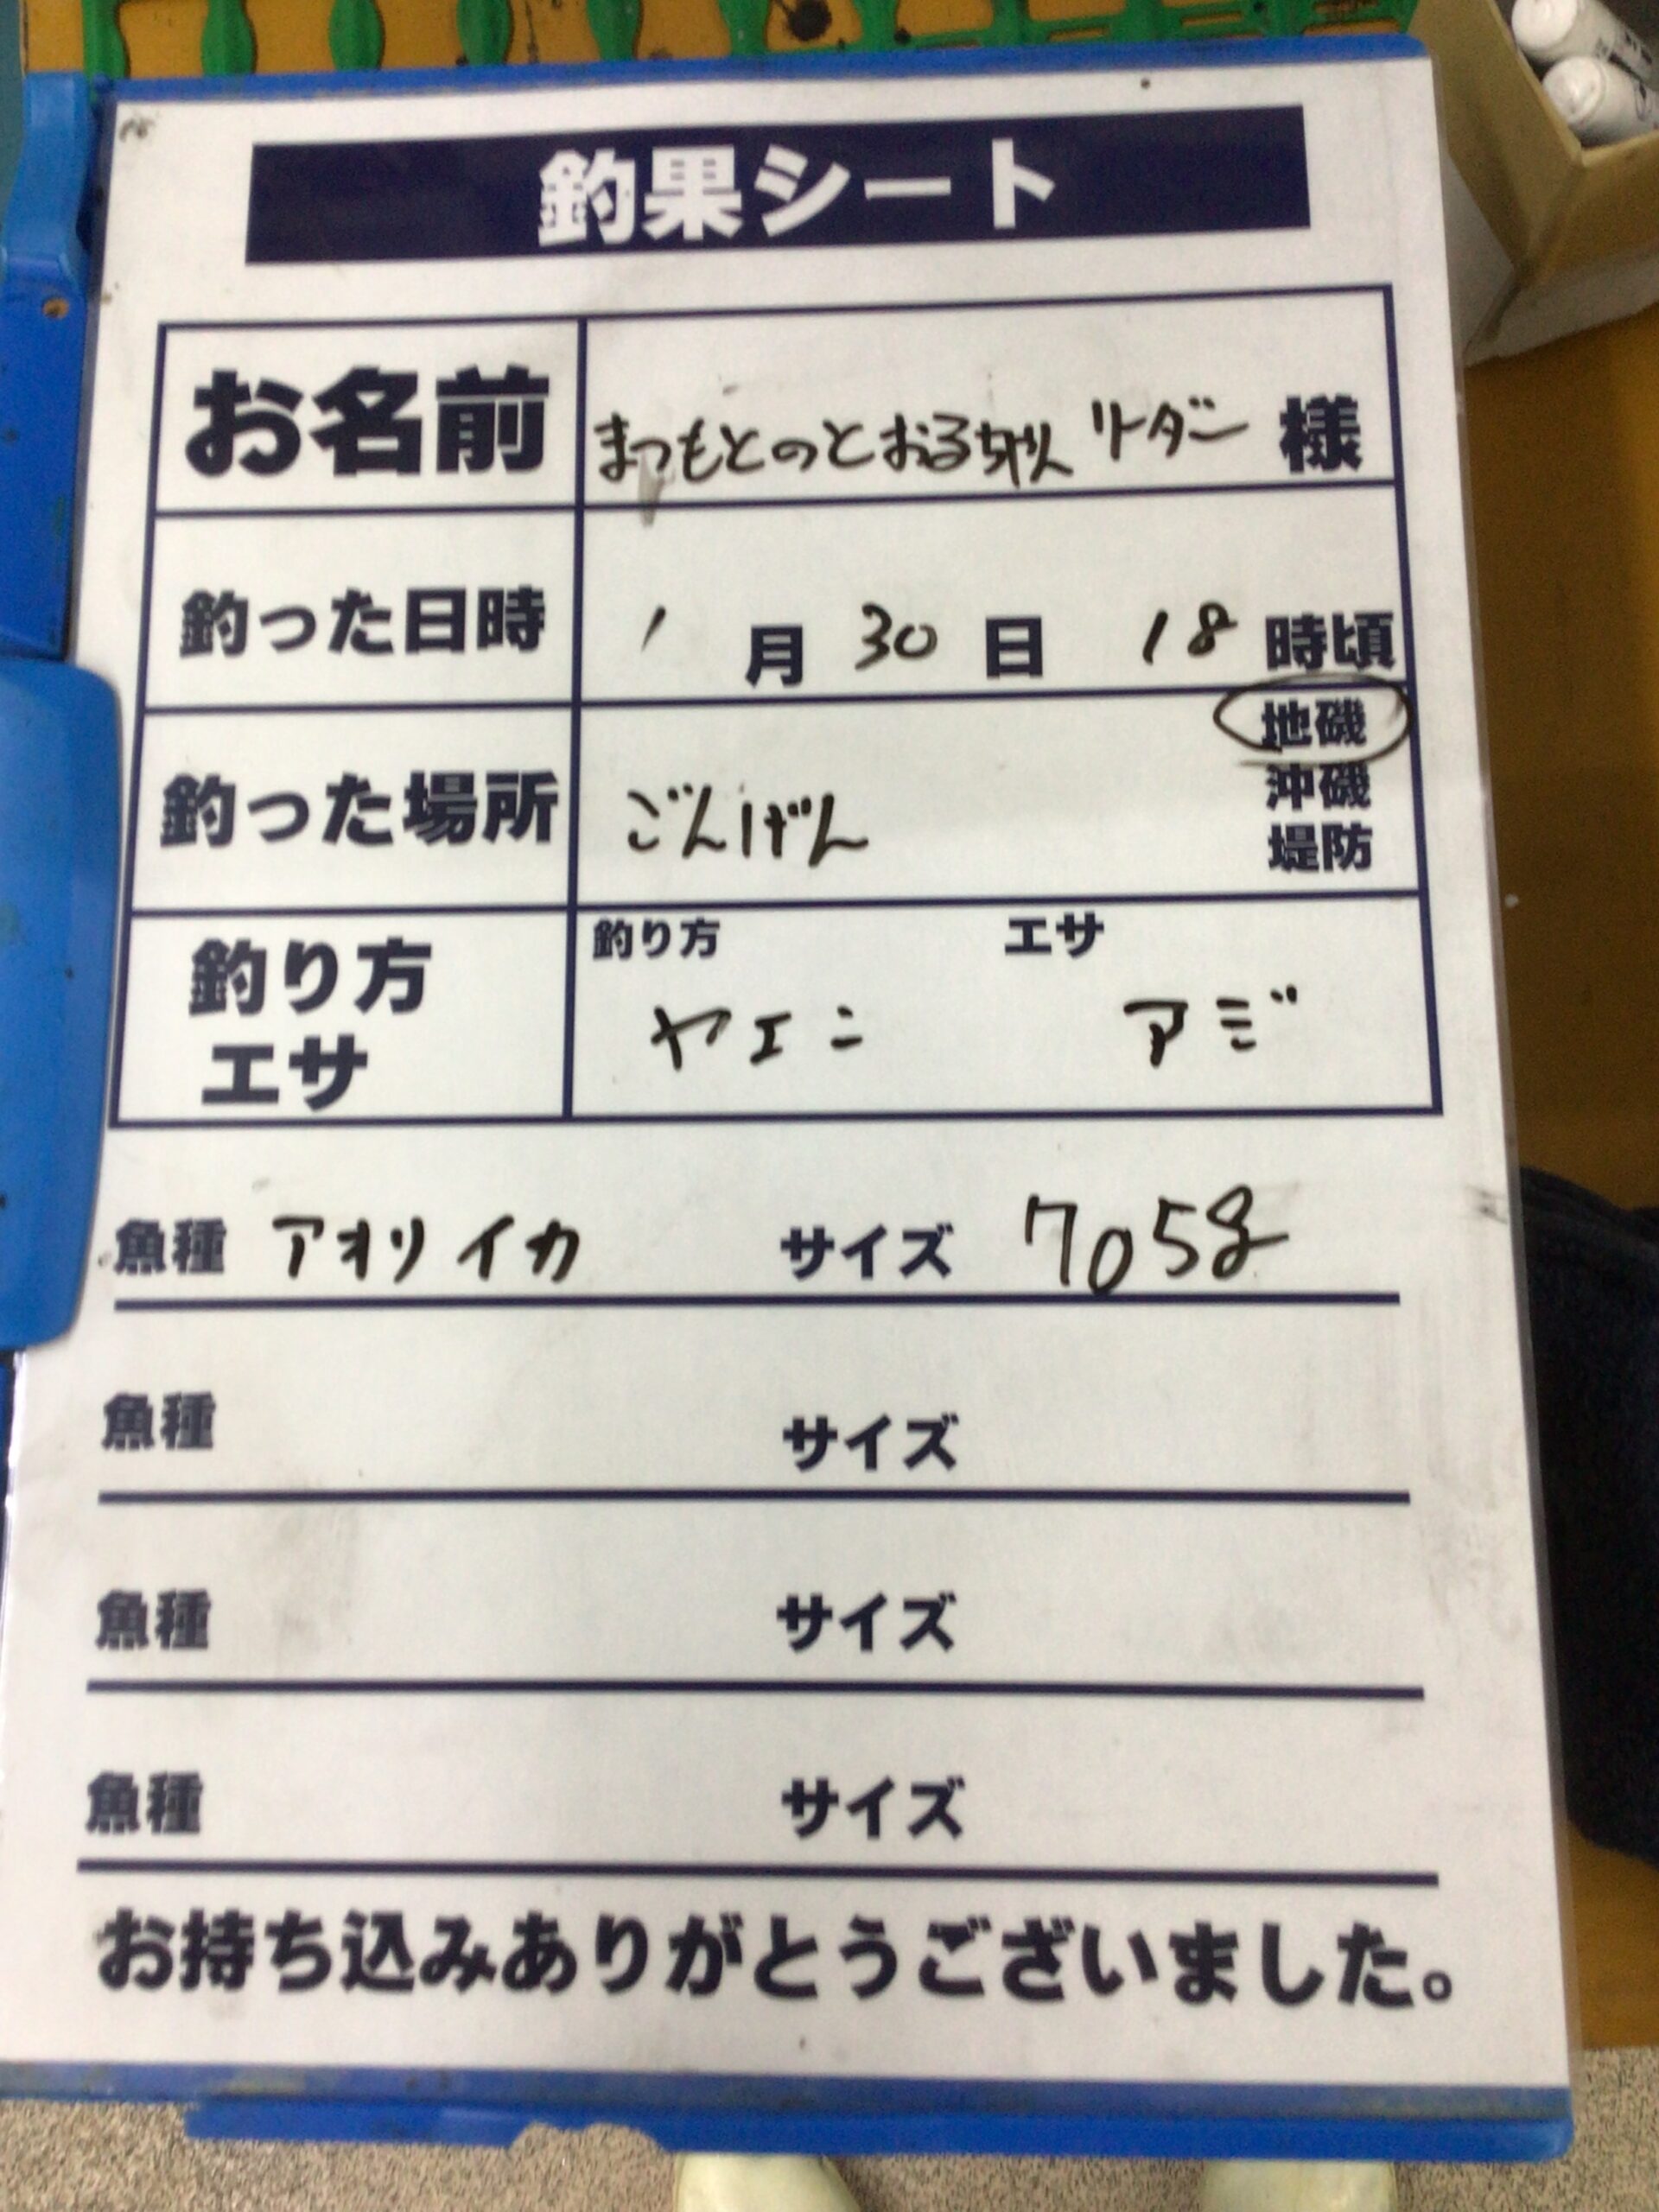 釣果シート
お名前 まつもとのとおるちゃん リーダー 様
釣った日時 1月30日 18時頃
釣った場所 ごんげん 地磯
沖磯
堤防
釣り方 エサ
釣り方 ヤエン
エサ アジ
魚種 アオリイカ サイズ 705g
魚種 サイズ
魚種 サイズ
魚種 サイズ
お持ち込みありがとうございました。